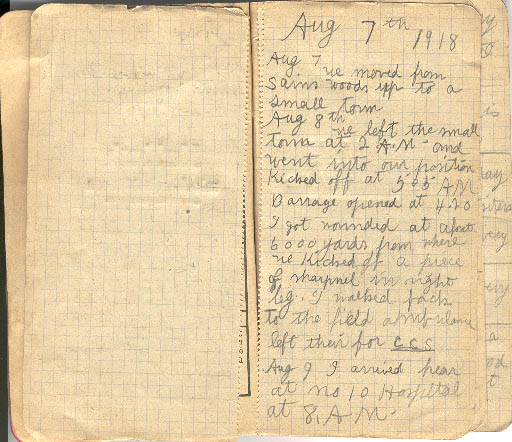 Aug 7th 1918
Aug 7
we moved from
Sains woods up to a
small town
Aug 8th
we left the small
town at 2 A.M. and
went into our position
Kicked off at 5.05 A M
Barrage opened at 4.20
I got wounded at about
6000 yards from where
we Kicked of a piece
of sharpnel in right
leg. I walked back
to the field ambulance
left their for C.C.S
Aug 9 I arrived hear
at no 10 Hospital
at 8. A.M.